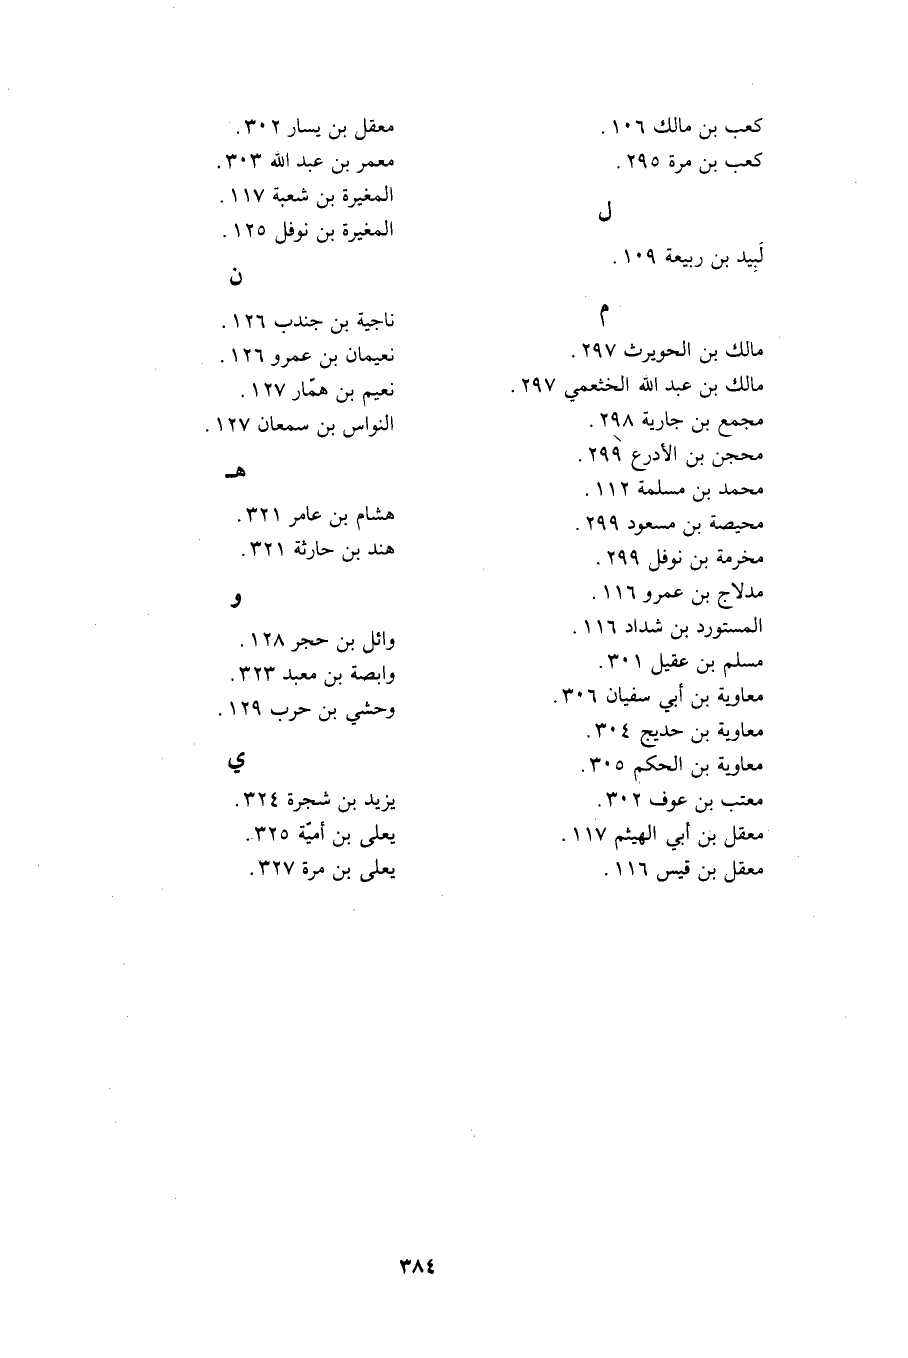 كعب بن مالك ١٠٦ .
كعب بن مرة ٢٩٥ .
ل
لَبِيد بن ربيعة ١٠٩ .
م
مالك بن الحويرث ٢٩٧ .
مالك بن عبد الله الخثعمي ٢٩٧ .
مجمع بن جارية ٢٩٨ .
محجن بن الأدرع ٢٩٩ .
محمد بن مسلمة ١١٢ .
محيصة بن مسعود ٢٩٩ .
مخرمة بن نوفل ٢٩٩ .
مدلاج بن عمرو ١١٦ .
المستورد بن شداد ١١٦ .
مسلم بن عقيل ٣٠١ .
معاوية بن أبي سفيان ٣٠٦ .
معاوية بن حديج ٣٠٤ .
معاوية بن الحكم ٣٠٥ .
معتب بن عوف ٣٠٢ .
معقل بن أبي الهيثم ١١٧ .
معقل بن قيس ١١٦ .
معقل بن يسار ٣٠٢ .
معمر بن عبد الله ٣٠٣ .
المغيرة بن شعبة ١١٧ .
المغيرة بن نوفل ١٢٥ .
ن
ناجية بن جندب ١٢٦ .
نعيمان بن عمرو ١٢٦ .
نعيم بن همّار ١٢٧ .
النواس بن سمعان ١٢٧ .
هـ
هشام بن عامر ٣٢١ .
هند بن حارثة ٣٢١ .
و
وائل بن حجر ١٢٨ .
وابصة بن معبد ٣٢٣ .
وحشي بن حرب ١٢٩ .
ي
يزيد بن شجرة ٣٢٤ .
يعلى بن أميّة ٣٢٥ .
يعلى بن مرة ٣٢٧ .
٣٨٤